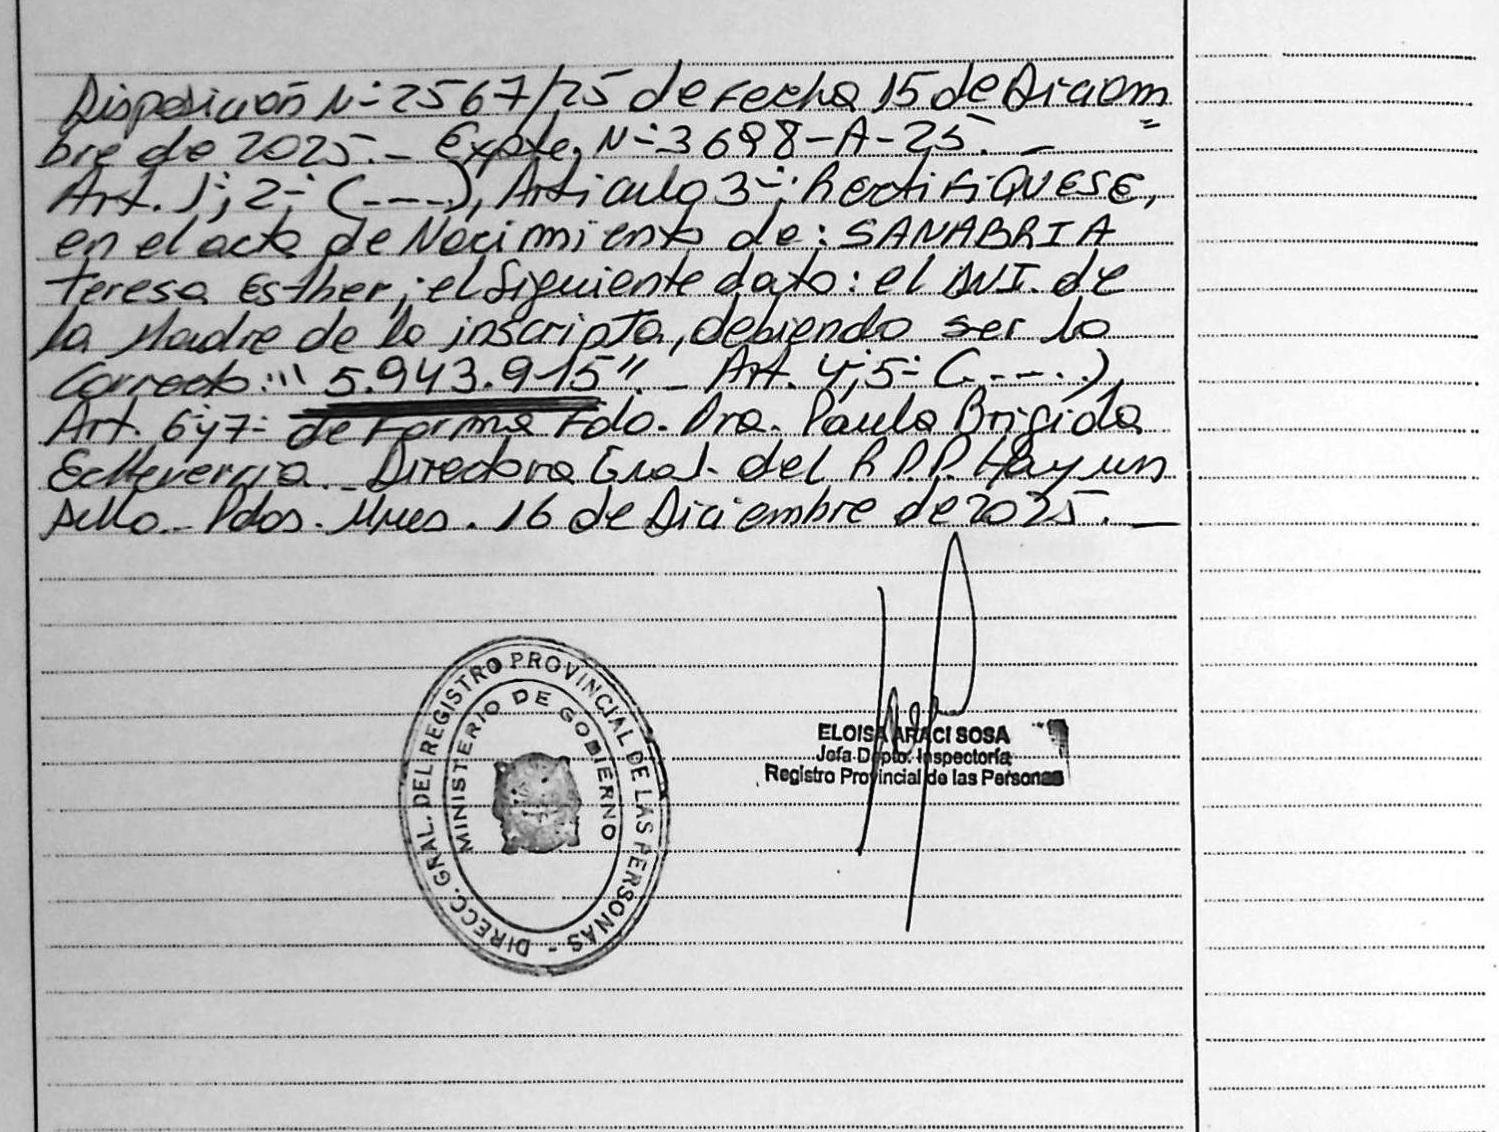 Disposición N° 2567/25 de Fecha 15 de Diciem=
bre de 2025.- Expte. N° 3698-A-25.-
Art. 1°; 2°; (----), Articulo 3°; RectiFiQUESE,
en el acta de Nacimiento de: SANABRIA
Teresa Esther; el siguiente dato: el DNI. de
la Madre de la inscripta, debiendo ser lo
Correcto: "5.943.915".- Art. 4°; 5° (----),
Art. 6° y 7° de Forma Fdo. Dra. Paula Brigida
Echeverria.- Directora Gral. del R.P.P. Hay un
sello.- Pdas. Mnes. 16 de Diciembre de 2025.-
DIRECC. GRAL. DEL REGISTRO PROVINCIAL DE LAS PERSONAS -
MINISTERIO DE GOBIERNO
ELOISA ARACI SOSA
Jefa Dpto. Inspectoría
Registro Provincial de las Personas